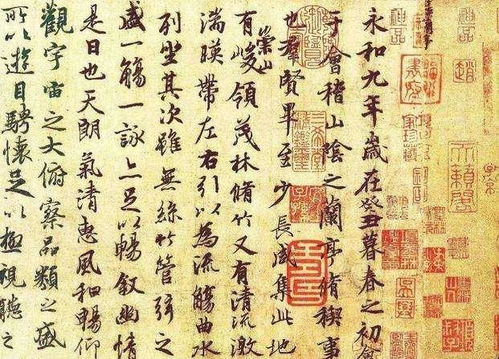 趙
永和九年歲在癸丑暮春之初會
于會稽山陰之蘭亭脩稧事
也羣賢畢至少長咸集此地
有崇山峻領茂林脩竹又有清流激
湍暎帶左右引以為流觴曲水
列坐其次雖無絲竹管弦之
盛一觴一詠亦足以暢敘幽情
是日也天朗氣清惠風和暢仰
觀宇宙之大俯察品類之盛
所以遊目騁懷足以極視聽之